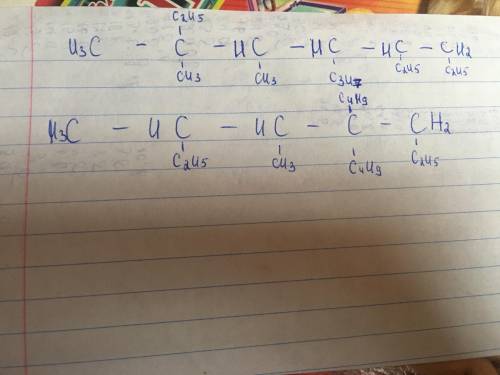 C2H5
H3C - C - HC - HC - HC - CH2
CH3 CH3 C3H7 C2H5 C2H5
C4H9
H3C - HC - HC - C - CH2
C2H5 CH3 C4H9 C2H5